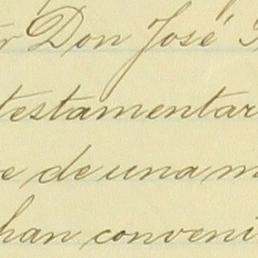 r Don José
testamentar
e de una m
han conveni